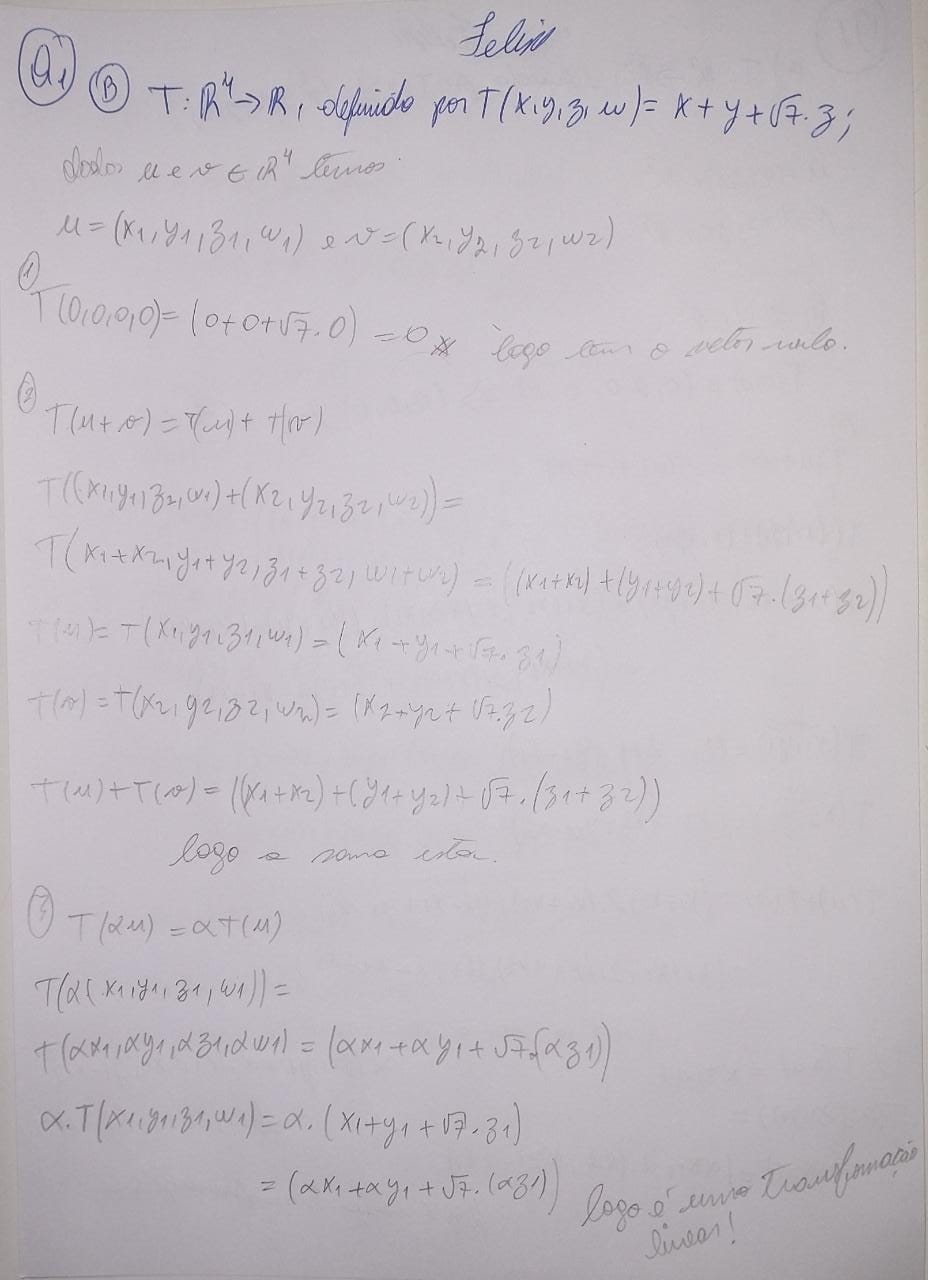 Felix
Q1 B T: R⁴→R, definido por T(x,y,z,w)= x+y+√7.z;
dados u e v ∈ R⁴ temos
u=(x1,y1,z1,w1) e v=(x2,y2,z2,w2)
1
T(0,0,0,0)= (0+0+√7.0) =0 logo tem o vetor nulo.
2
T(u+v)=T(u)+T(v)
T((x1,y1,z2,w1)+(x2,y2,z2,w2))=
T(x1+x2,y1+y2,z1+z2,w1+w2) = ((x1+x2)+(y1+y2)+√7.(z1+z2))
T(u)=T(x1,y1,z1,w1)=(x1+y1+√7.z1)
T(v)=T(x2,y2,z2,w2)=(x2+y2+√7.z2)
T(u)+T(v)=((x1+x2)+(y1+y2)+√7.(z1+z2))
logo a soma
3 T(αu)=αT(u)
T(α(x1,y1,z1,w1))=
T(αx1,αy1,αz1,αw1)=(αx1+αy1+√7.(αz1))
α.T(x1,y1,z1,w1)=α.(x1+y1+√7.z1)
=(αx1+αy1+√7.(αz1))
logo é uma Transformação
linear!